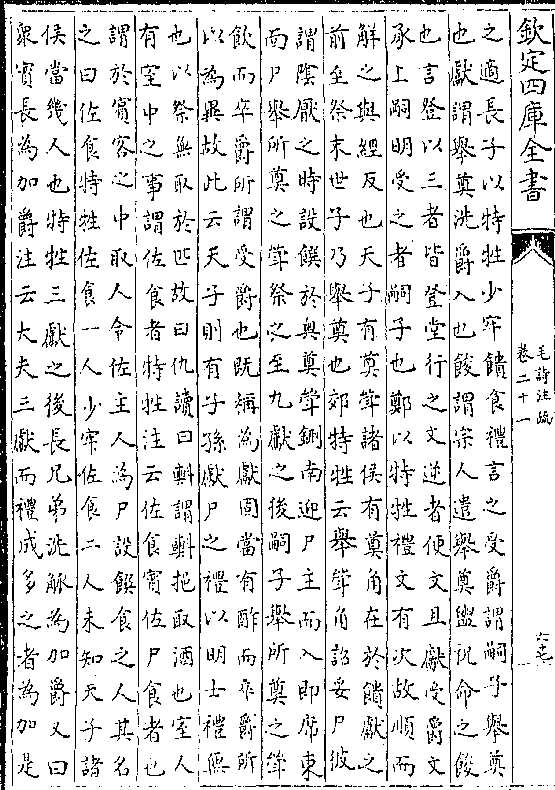 欽定四庫全書
毛詩注疏
卷二十一
之適長子以特牲少牢饋食禮言之受爵謂嗣子舉奠
也獻謂舉奠洗爵入也餕謂宗人遣舉奠盥祝命之餕
也言登以三者皆登堂行之文逆者便文且獻受爵文
承上嗣明受之者嗣子也鄭以特牲禮文有次故順而
解之與經反也天子有奠斝諸侯有奠角在於饋獻之
前至祭末世子乃舉奠也郊特牲云舉斝角詔妥尸彼
謂陰厭之時設饌於奥奠斝鉶南迎尸主而入即席東
面尸舉所奠之斝祭之至九獻之後嗣子舉所奠之斝
飲而卒爵所謂受爵也既稱為獻固當有酢而卒爵所
以為異故此云天子則有子孫獻尸之禮以明士禮無
也以祭無取於匹故曰仇讀曰㪺謂㪺挹取酒也室人
有室中之事謂佐食者特牲注云佐食賓佐尸食者也
謂於賓客之中取人令佐主人為尸設饌食之人其名
之曰佐食特牲佐食一人少牢佐食二人未知天子諸
侯當幾人也特牲三獻之後長兄弟洗觚為加爵又曰
衆賓長為加爵注云大夫三獻而禮成多之者為加是